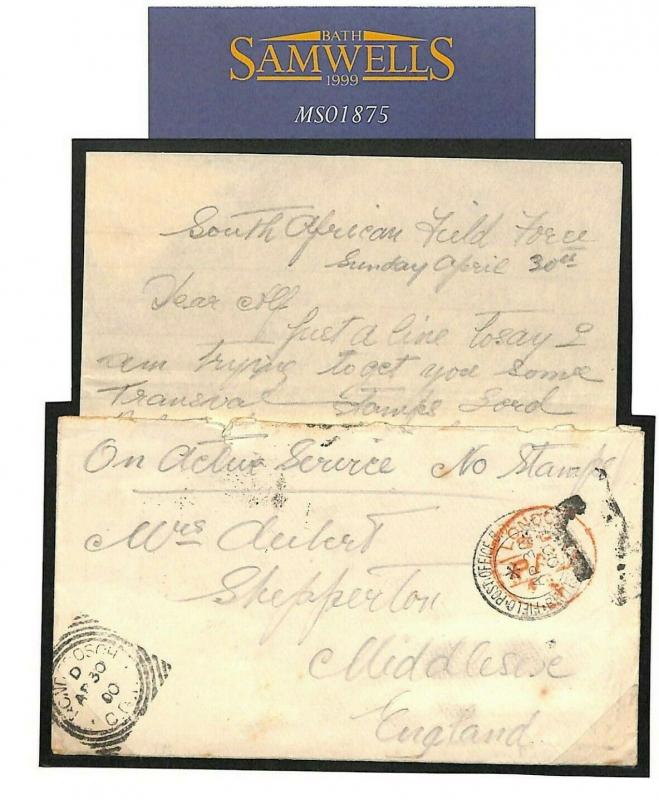 BATH
SAMWELLS
1999
MS01875
South African Field Force
Sunday April 30th
Dear Alf
Just a line to say I
am trying to get you some
Transval Stamps Lord
On Active Service No Stamps
Mrs
Shepperton
Middlesex
England
FIELD POST OFFICE
LONDON
PAID
D
AP 30
00